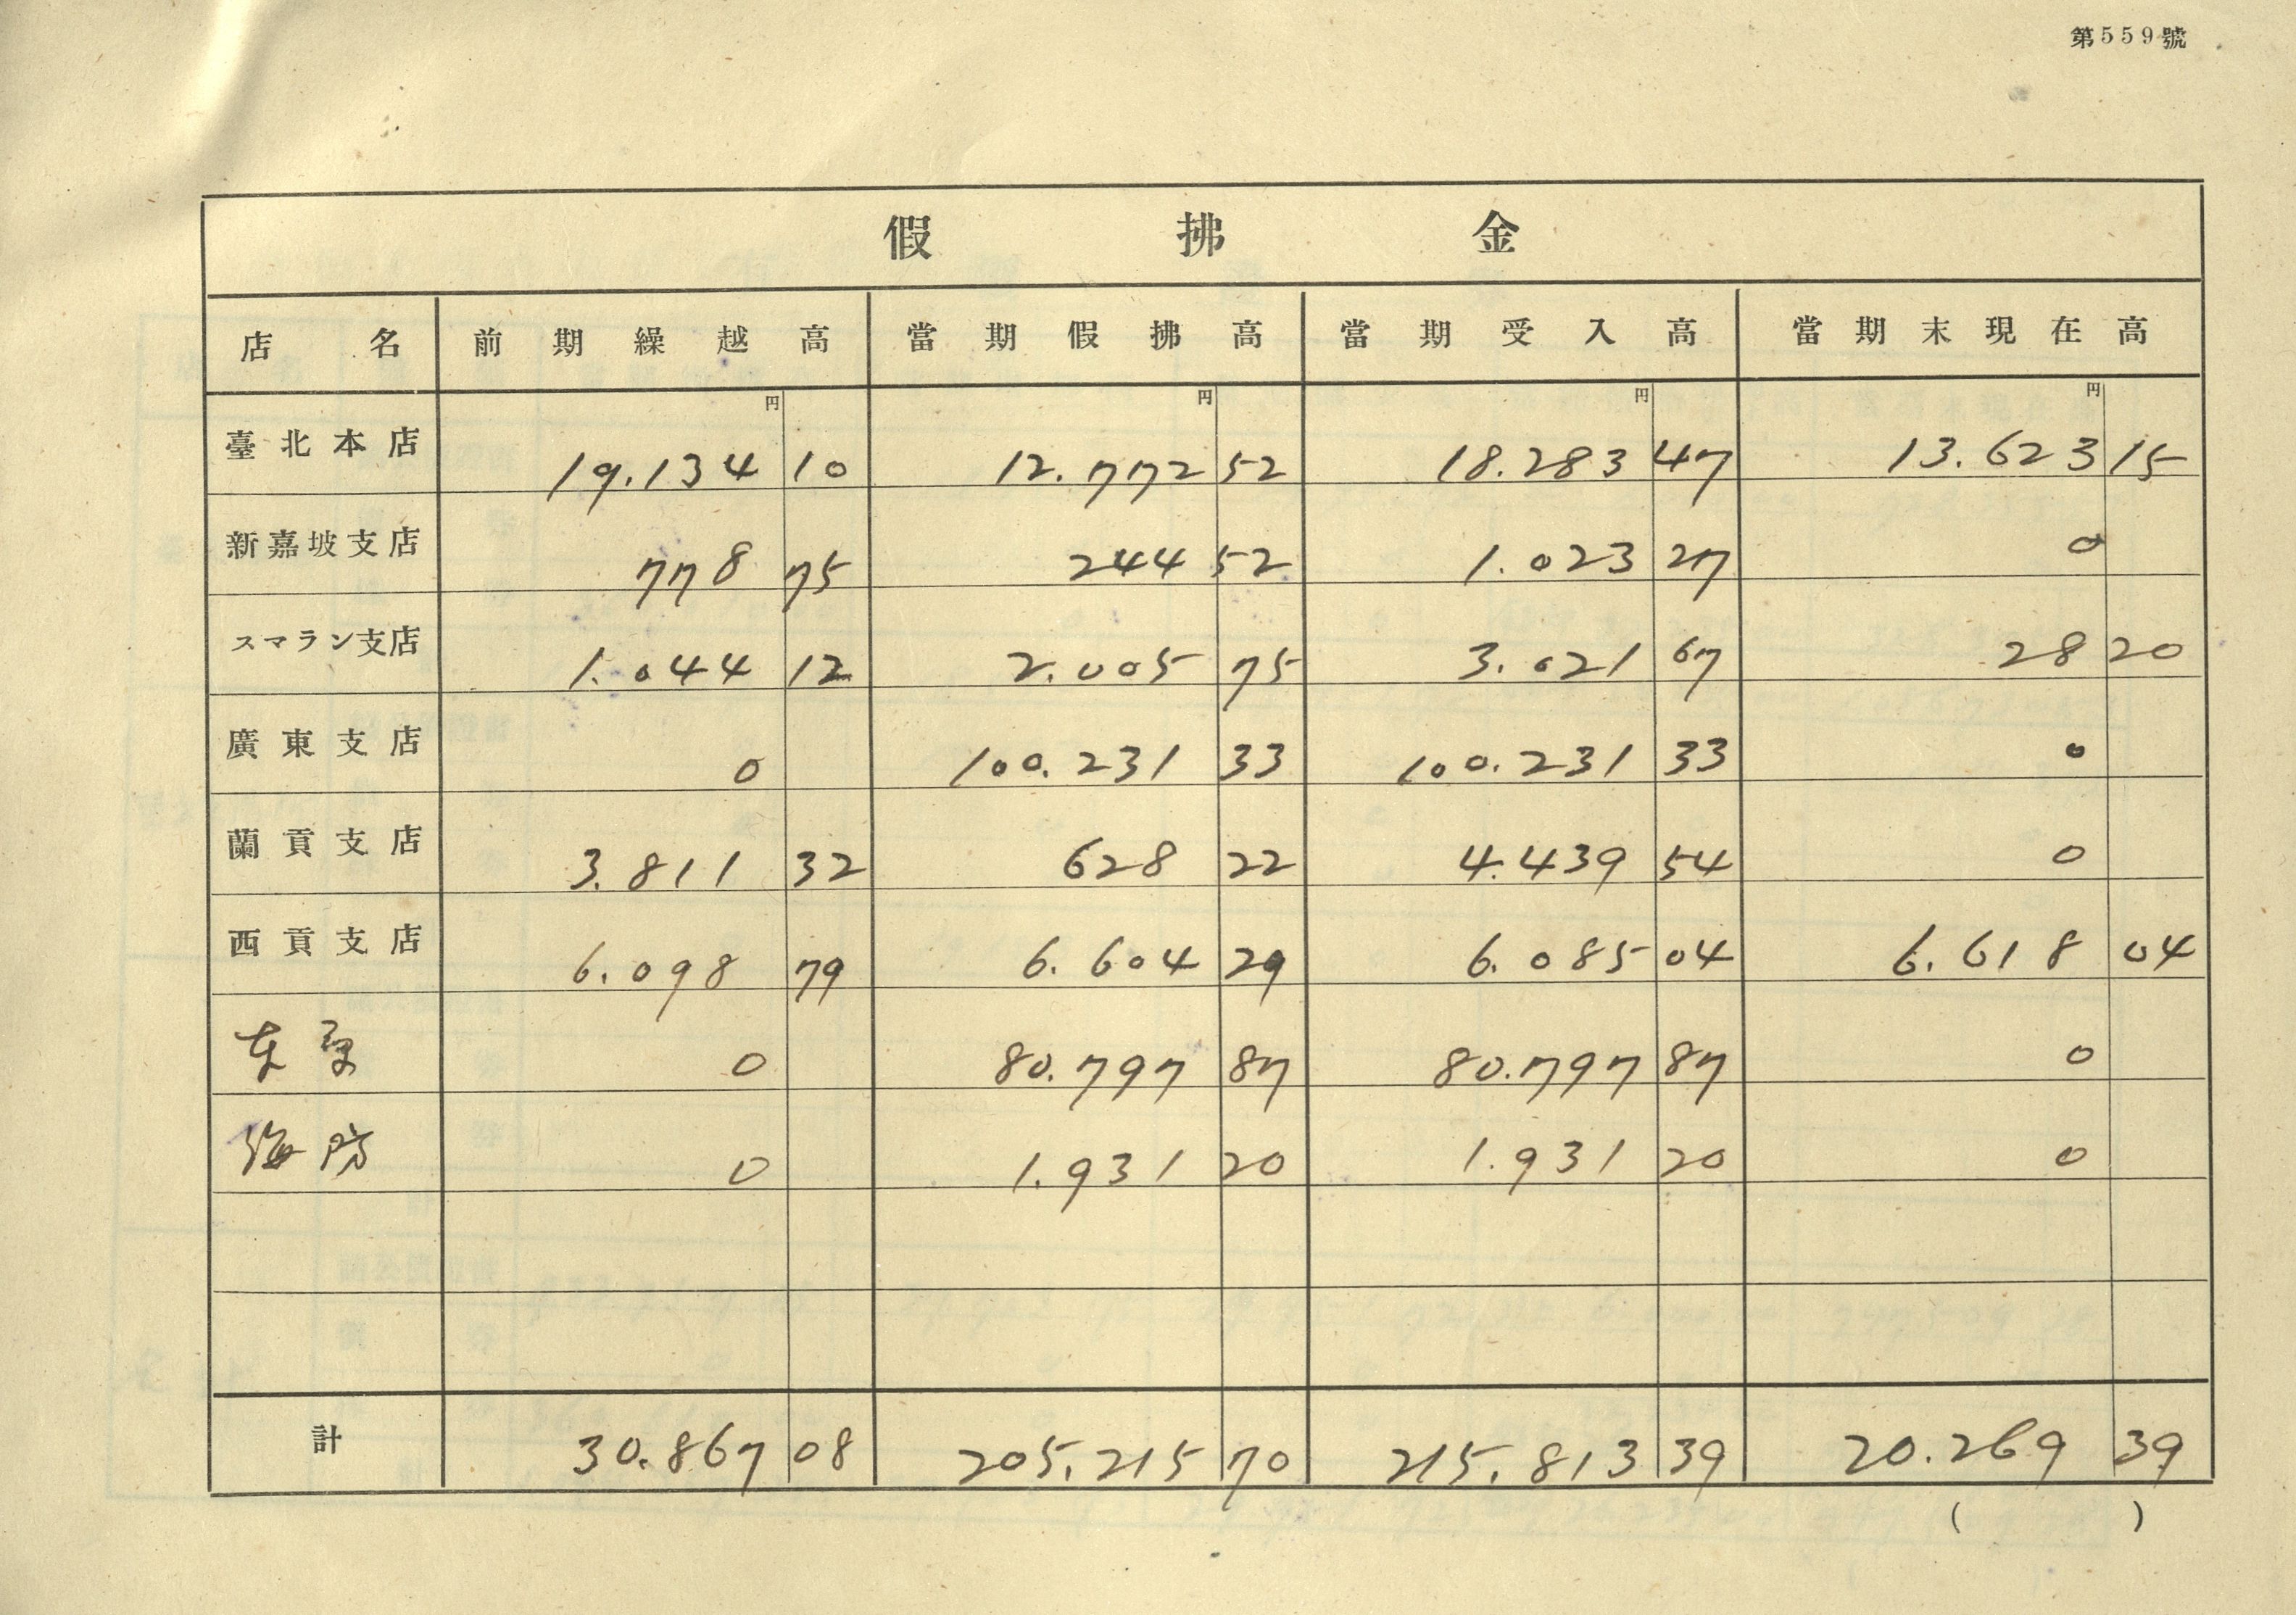 第559號
假拂金
店名 前期繰越高 當期假拂高 當期受入高 當期末現在高
円 円 円 円
臺北本店 19.134 10 12.772 52 18.283 47 13.623 15
新嘉坡支店 778 75 244 52 1.023 27 0
スマラン支店 1.044 12 2.005 75 3.021 67 28 20
廣東支店 0 100.231 33 100.231 33 0
蘭貢支店 3.811 32 628 22 4.439 54 0
西貢支店 6.098 79 6.604 29 6.085 04 6.618 04
東京 0 80.797 87 80.797 87 0
海防 0 1.931 20 1.931 20 0
計 30.867 08 205.215 70 215.813 39 20.269 39
( )